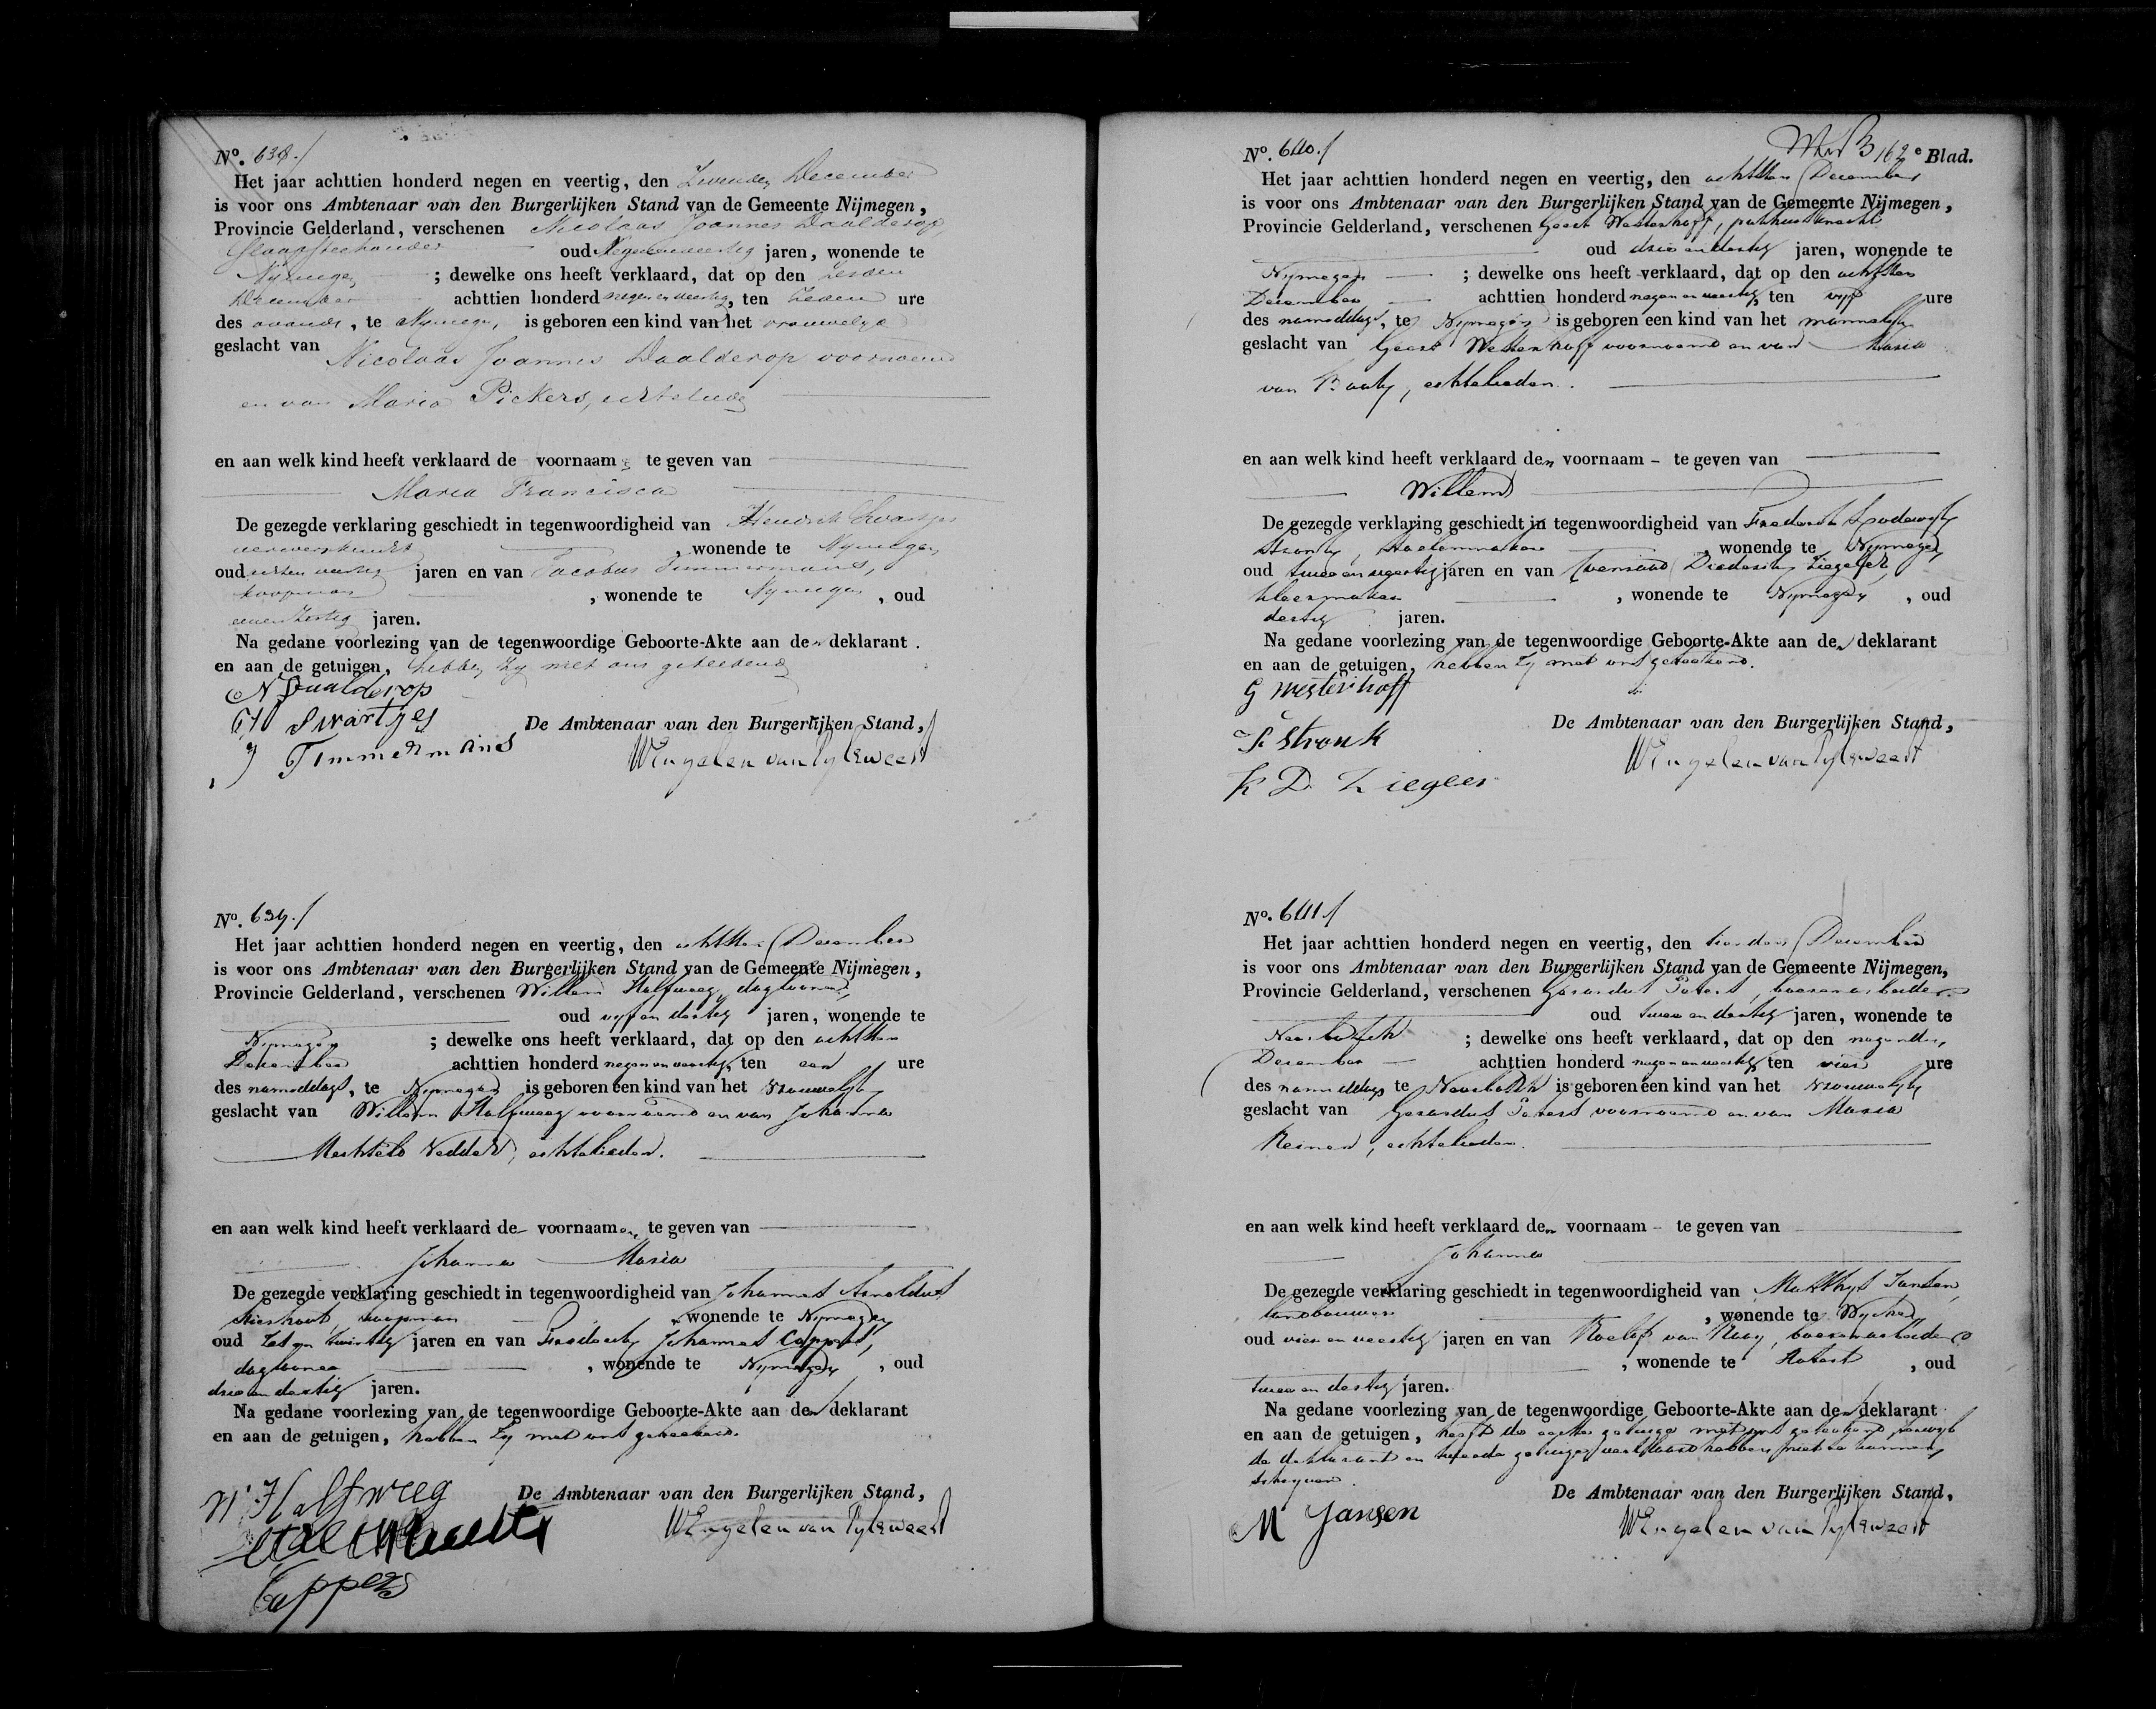 No. 638.
Het jaar achttien honderd negen en veertig, den Zevenden December
is voor ons Ambtenaar van den Burgerlijken Stand van de Gemeente Nijmegen,
Provincie Gelderland, verschenen Nicolaas Joannes Daalderop
Slaapsteehouder oud Negenenveertig jaren, wonende te
Nijmegen ; dewelke ons heeft verklaard, dat op den Zesden
December achttien honderd negen en veertig, ten Zeven ure
des avonds, te Nijmegen, is geboren een kind van het vrouwelyk
geslacht van Nicolaas Joannes Daalderop voornoemd
en van Maria Pickers, echtelieden
en aan welk kind heeft verklaard de voornaam te geven van
Maria Francisca
De gezegde verklaring geschiedt in tegenwoordigheid van Hendrik Swartjes
, wonende te Nijmegen
oud jaren en van Jacobus Timmermans,
koopman , wonende te Nijmegen , oud
jaren.
Na gedane voorlezing van de tegenwoordige Geboorte-Akte aan den deklarant
en aan de getuigen, hebben zy met ons geteekend
N Daalderop
H Swartjes De Ambtenaar van den Burgerlijken Stand,
J Timmermans WEngelen van Pylsweert
No. 639.
Het jaar achttien honderd negen en veertig, den achtsten December
is voor ons Ambtenaar van den Burgerlijken Stand van de Gemeente Nijmegen,
Provincie Gelderland, verschenen Willem Halfweeg, daglooner,
oud vyf en dertig jaren, wonende te
Nijmegen ; dewelke ons heeft verklaard, dat op den achtsten
December achttien honderd negen en veertig, ten een ure
des namiddags, te Nijmegen is geboren een kind van het vrouwelyk
geslacht van Willem Halfweeg voornoemd en van Johanna
Mechteld Vedder, echtelieden.
en aan welk kind heeft verklaard de voornaamen te geven van
Johanna Maria
De gezegde verklaring geschiedt in tegenwoordigheid van Johannes Arnoldus
koopman , wonende te Nijmegen
oud Zes en twintig jaren en van Frederik Johannes Cappers,
daglooner , wonende te Nijmegen , oud
drie en dertig jaren.
Na gedane voorlezing van de tegenwoordige Geboorte-Akte aan den deklarant
en aan de getuigen, hebben zy met ons geteekend.
W Halfweeg De Ambtenaar van den Burgerlijken Stand,
WEngelen van Pylsweert
Cappers
162e Blad.
No. 640.
Het jaar achttien honderd negen en veertig, den achtsten December
is voor ons Ambtenaar van den Burgerlijken Stand van de Gemeente Nijmegen,
Provincie Gelderland, verschenen Geert Westerhoff, pakhuisknecht
oud drie en dertig jaren, wonende te
Nijmegen ; dewelke ons heeft verklaard, dat op den achtsten
December achttien honderd negen en veertig, ten vyf ure
des namiddags, te Nijmegen is geboren een kind van het mannelyk
geslacht van Geert Westerhoff voornoemd en van Maria
van , echtelieden.
en aan welk kind heeft verklaard den voornaam - te geven van
Willem
De gezegde verklaring geschiedt in tegenwoordigheid van Frederik Lodewyk
Stronk, stoelenmaker , wonende te Nijmegen
oud twee en veertig jaren en van Diederik Ziegeler,
kleermaker , wonende te Nijmegen , oud
dertig jaren.
Na gedane voorlezing van de tegenwoordige Geboorte-Akte aan den deklarant
en aan de getuigen, hebben zy met ons geteekend.
G Westerhoff
De Ambtenaar van den Burgerlijken Stand,
Stronk WEngelen van Pylsweert
D Ziegler
No. 641.
Het jaar achttien honderd negen en veertig, den tienden December
is voor ons Ambtenaar van den Burgerlijken Stand van de Gemeente Nijmegen,
Provincie Gelderland, verschenen Gerardus Peters, boerenarbeider
oud twee en dertig jaren, wonende te
Neerbosch ; dewelke ons heeft verklaard, dat op den negenden
December achttien honderd negen en veertig, ten vier ure
des namiddags te Neerbosch is geboren een kind van het vrouwelyk
geslacht van Gerardus Peters voornoemd en van Maria
Reinen, echtelieden.
en aan welk kind heeft verklaard den voornaam - te geven van
Johanna
De gezegde verklaring geschiedt in tegenwoordigheid van Matthys Jansen,
landbouwer , wonende te Wychen
oud vier en veertig jaren en van Roelof van Raay, boerenarbeider
, wonende te Hatert , oud
twee en dertig jaren.
Na gedane voorlezing van de tegenwoordige Geboorte-Akte aan den deklarant
en aan de getuigen, heeft de eerste getuige met ons geteekend terwyl
de deklarant en tweede getuige verklaard hebben niet te kunnen
schryven.
De Ambtenaar van den Burgerlijken Stand,
M Jansen WEngelen van Pylsweert